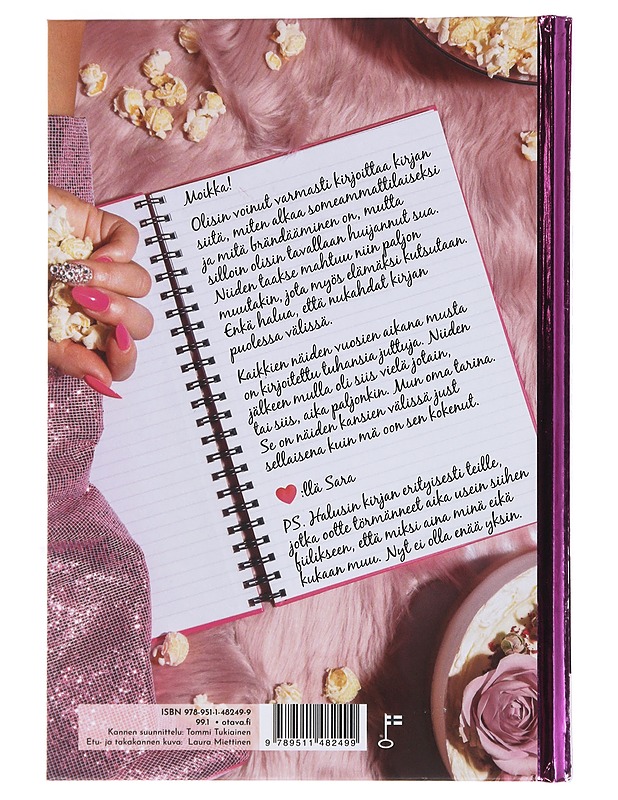 Moikka!
Olisin voinut varmasti kirjoittaa kirjan
siitä, miten alkaa someammattilaiseksi
ja mitä brändääminen on, mutta
silloin olisin tavallaan huijannut sua.
Niiden taakse mahtuu niin paljon
muutakin, jota myös elämäksi kutsutaan.
Enkä halua, että nukahdat kirjan
puolessa välissä.
Kaikkien näiden vuosien aikana musta
on kirjoitettu tuhansia juttuja. Niiden
jälkeen mulla oli siis vielä jotain,
tai siis, aika paljonkin. Mun oma tarina.
Se on näiden kansien välissä just
sellaisena kuin mä oon sen kokenut.
:llä Sara
PS. Halusin kirjan erityisesti teille,
jotka ootte törmänneet aika usein siihen
fiilikseen, että miksi aina minä eikä
kukaan muu. Nyt ei olla enää yksin.
ISBN 978-951-1-48249-9
99.1 • otava.fi
Kannen suunnittelu: Tommi Tukiainen
Etu- ja takakannen kuva: Laura Miettinen
9 789511 482499